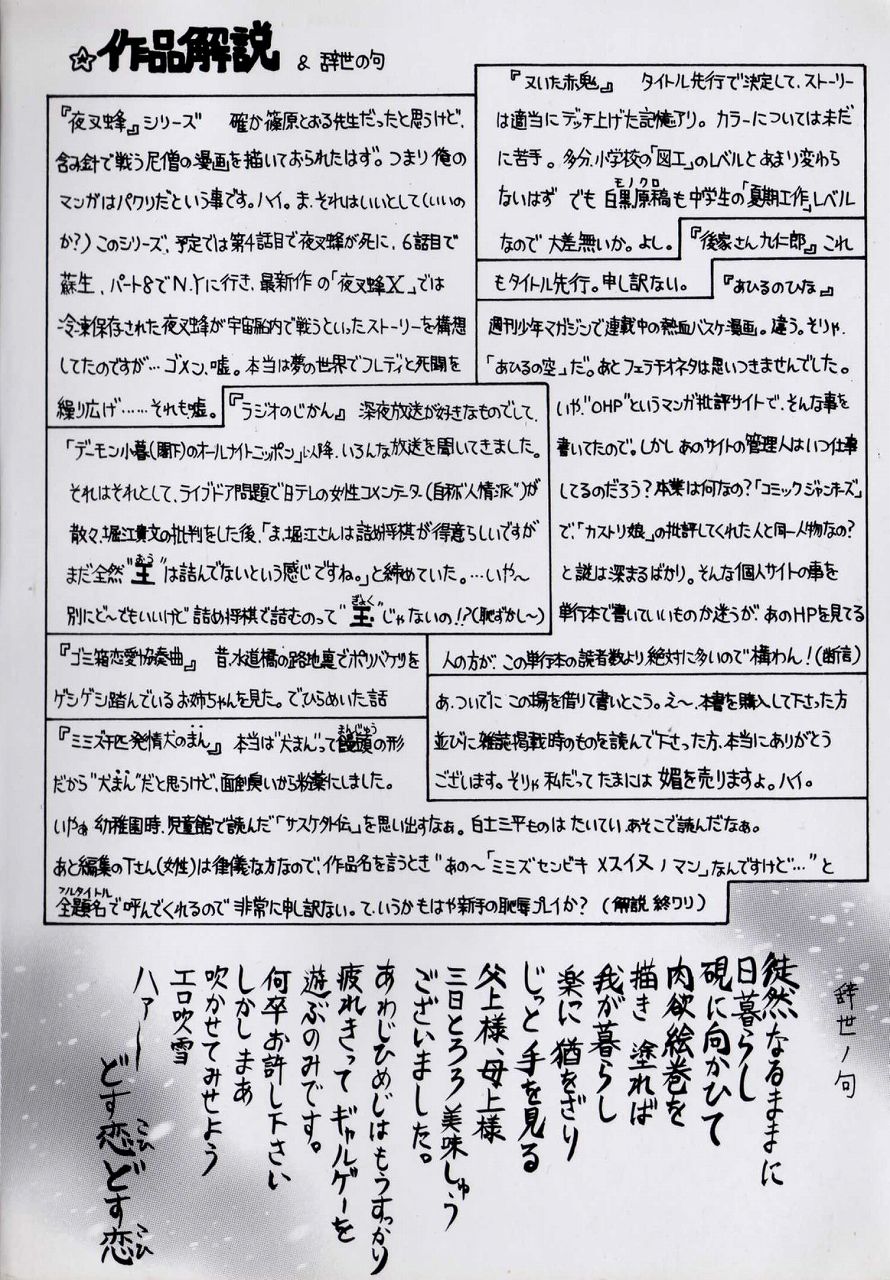 ☆作品解説 & 辞世の句
『夜叉蜂』シリーズ 確か篠原とおる先生だったと思うけど、
含み針で戦う尼僧の漫画を描いておられたはず。つまり俺の
マンガはパクリだという事です。ハイ。ま、それはいいとして(いいの
か?)このシリーズ、予定では第4話目で夜叉蜂が死に、6話目で
蘇生、パート8でN.Yに行き、最新作の「夜叉蜂X」では
冷凍保存された夜叉蜂が宇宙船内で戦うといったストーリーを構想
してたのですが…ゴメン、嘘。本当は夢の世界でフレディと死闘を
繰り広げ……それも嘘。
『ラジオのじかん』 深夜放送が好きなものでして、
「デーモン小暮(閣下)のオールナイトニッポン」以降、いろんな放送を聞いてきました。
それはそれとして、ライブドア問題で日テレの女性コメンテーター(自称“人情派”)が
散々、堀江貴文の批判をした後、「ま、堀江さんは詰め将棋が得意らしいですが
まだ全然“王”は詰んでないという感じですね。」と締めていた。…いや〜
おう
別にど〜でもいいけど詰め将棋で詰むのって“玉”じゃないの!?(恥ずかし〜)
ぎょく
『ゴミ箱恋愛協奏曲』 昔、水道橋の路地裏でポリバケツを
ゲシゲシ踏んでいるお姉ちゃんを見た。でひらめいた話
『ミミズ千匹発情犬のまん』 本当は“犬まん”って饅頭の形
まんじゅう
だから“犬まん”だと思うけど、面倒臭いから粉薬にしました。
いやぁ幼稚園時、児童館で読んだ「サスケ外伝」を思い出すなぁ。白土三平ものはたいていあそこで読んだなぁ。
あと編集のTさん(女性)は律儀な方なので、作品名を言うとき“あの〜「ミミズセンビキ メスイヌノマン」なんですけど…”と
全題名で呼んでくれるので非常に申し訳ない。て、いうかもはや新手の恥辱プレイか? (解説終ワリ)
フルタイトル
『又いた赤鬼』 タイトル先行で決定して、ストーリー
は適当にデッチ上げた記憶アリ。カラーについては未だ
に苦手。多分、小学校の「図工」のレベルとあまり変わら
ないはず でも白黒原稿も中学生の「夏期工作」レベル
モノクロ
なので大差無いか。よし。
『後家さん九仁郎』これ
もタイトル先行。申し訳ない。
『あひるのひな』
週刊少年マガジンで連載中の熱血バスケ漫画。違う。そりゃ、
「あひるの空」だ。あとフェラチオネタは思いつきませんでした。
いや、“OHP”というマンガ批評サイトで、そんな事を
書いてたので。しかしあのサイトの管理人はいつ仕事
してるのだろう?本業は何なの?「コミックジャンキーズ」
で、「カストリ娘」の批評してくれた人と同一人物なの?
と謎は深まるばかり。そんな個人サイトの事を
単行本で書いていいものか迷うが、あのHPを見てる
人の方が、この単行本の読者数より絶対に多いので構わん!(断信)
あ、ついでにこの場を借りて書いとこう。え〜、本書を購入して下さった方
並びに雑誌掲載時のものを読んで下さった方、本当にありがとう
ございます。そりゃ私だってたまには媚を売りますよ。ハイ。
辞世ノ句
徒然なるままに
日暮らし
硯に向かひて
肉欲絵巻を
描き 塗れば
我が暮らし
楽に猶をざり
じっと手を見る
父上様、母上様
三日とろろ美味しゅう
ございました。
あわじひめじはもうすっかり
疲れきってギャルゲーを
遊ぶのみです。
何卒お許し下さい
しかしまあ
吹かせてみせよう
エロ吹雪
ハァー
どす恋どす恋
こひ
こひ